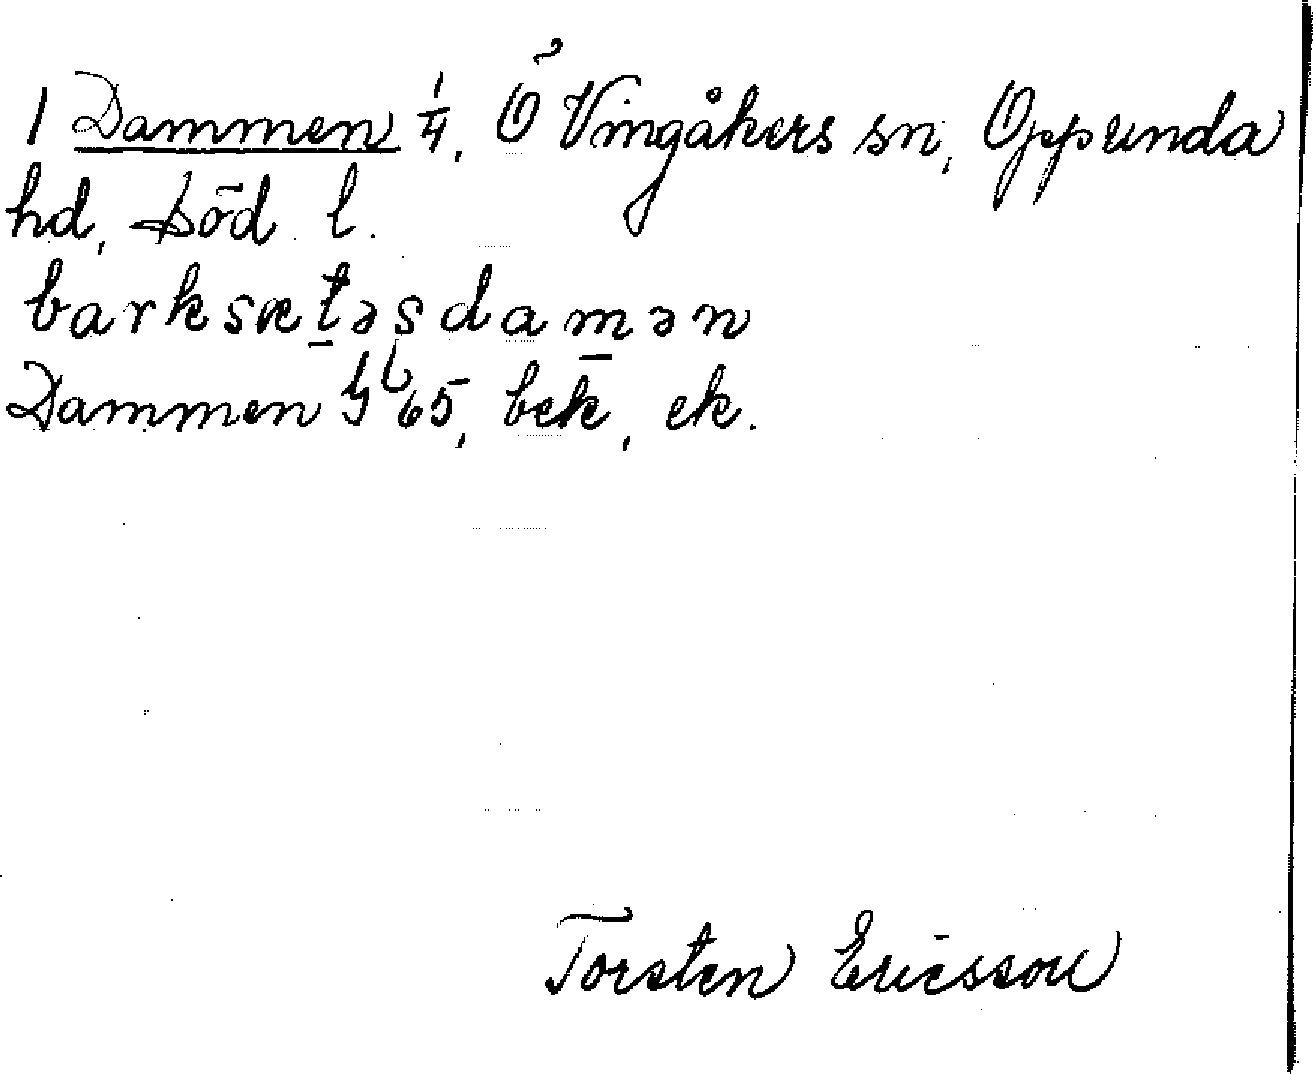 1 Dammen 1/4, Ö Vingåkers sn, Oppunda
hd, Söd. l.
barksætəsdamən
Dammen Gb 65, bek, ek.
Torsten Ericsson